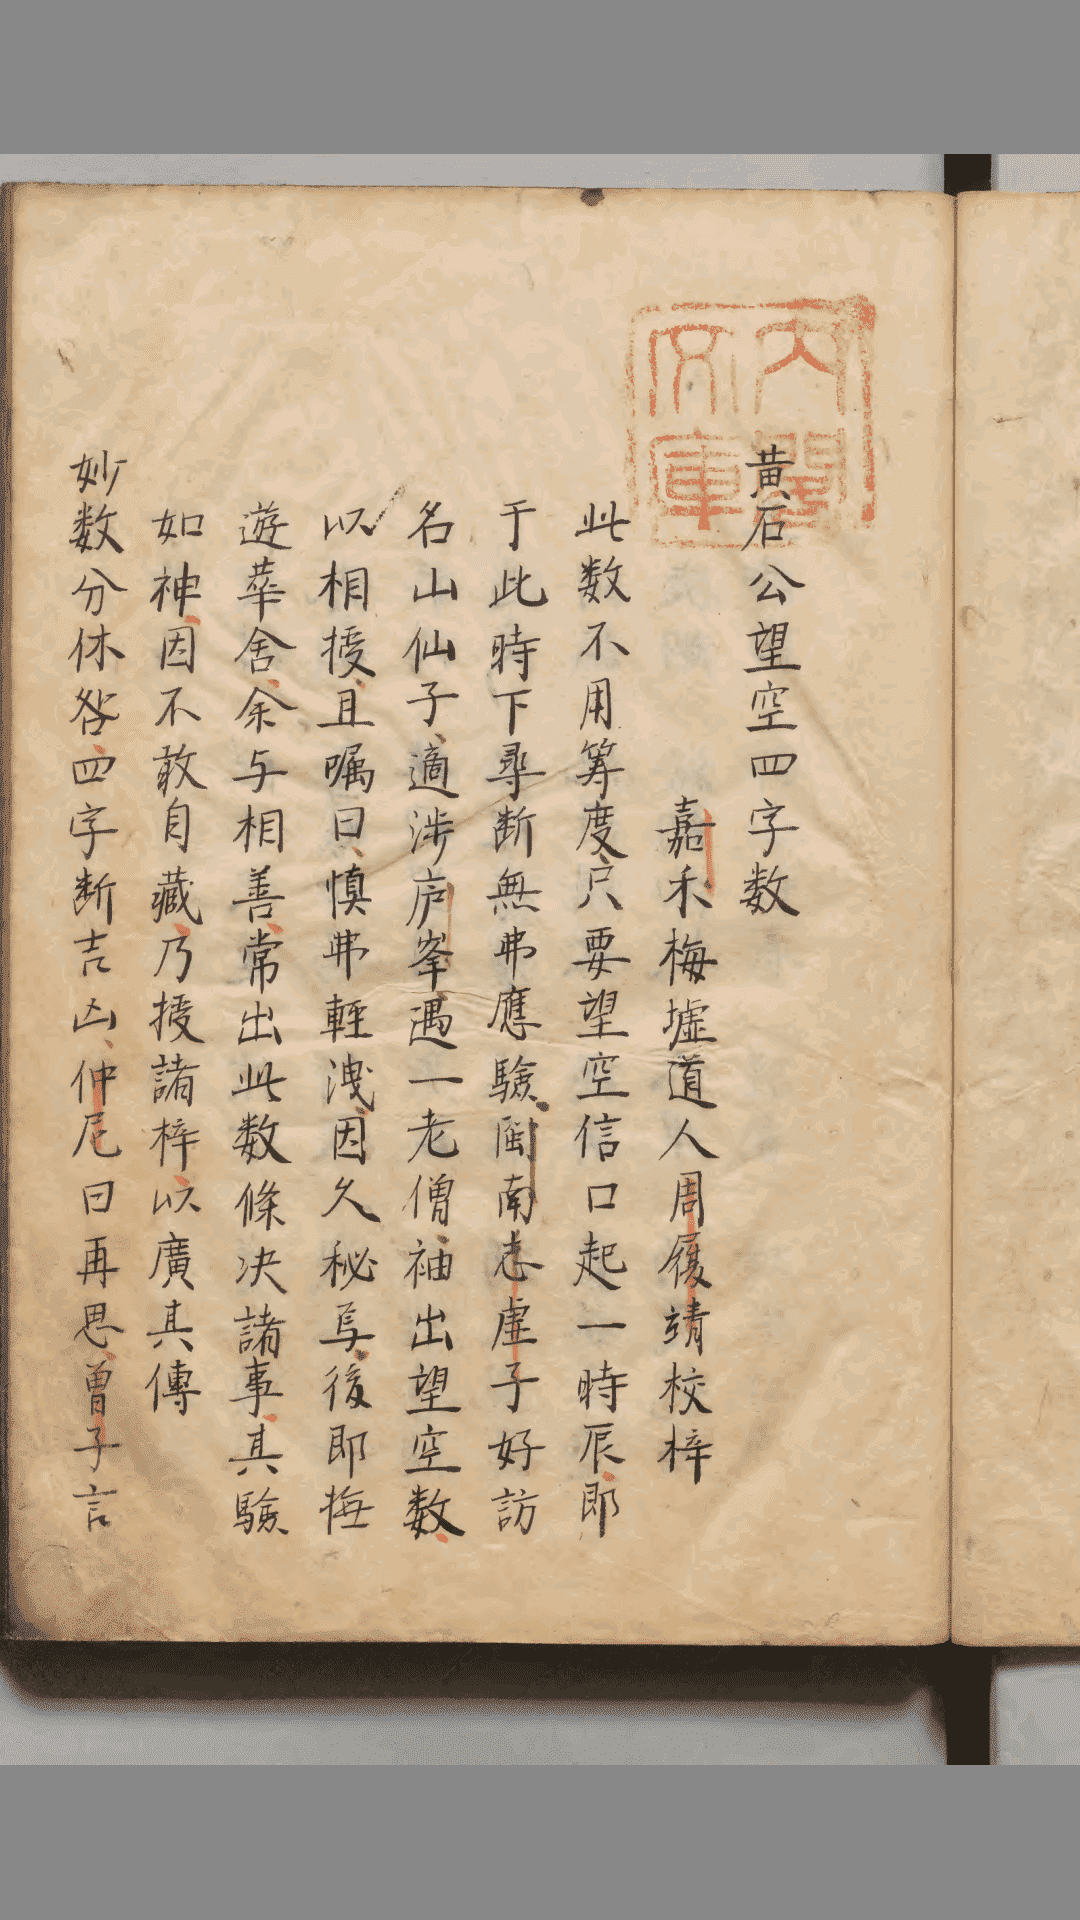 黄石公望空四字数
嘉禾梅墟道人周履靖校梓
此数不用筭度只要望空信口起一時辰即
于此時下尋断無弗應驗閩南志虚子好訪
名山仙子適渉庐峯遇一老僧袖出望空数
以相授且嘱曰慎弗輕洩因久秘焉後即梅
遊蕐舍余与相善常出此数條决諸事其驗
如神因不敢自藏乃授諸梓以廣其傳
妙数分休咎四字断吉凶仲尼曰再思曾子言
内閣文庫